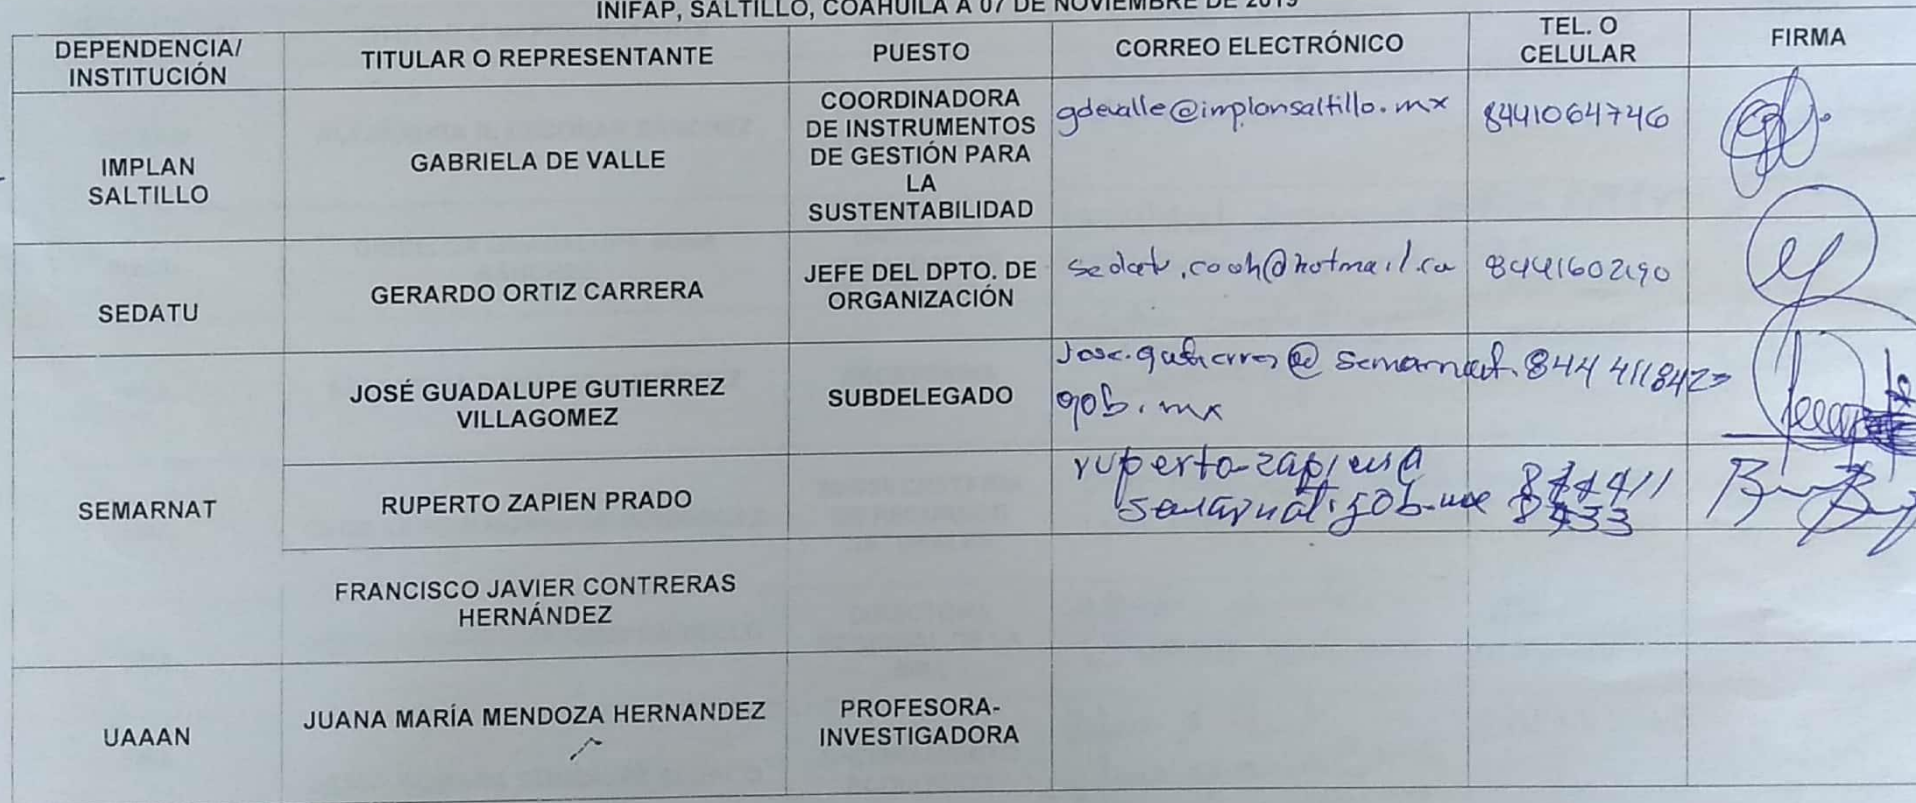 INIFAP, SALTILLO, COAHUILA A 07 DE NOVIEMBRE DE 2019
DEPENDENCIA/
INSTITUCIÓN
TITULAR O REPRESENTANTE
PUESTO
CORREO ELECTRÓNICO
TEL. O
CELULAR
FIRMA
IMPLAN
SALTILLO
GABRIELA DE VALLE
COORDINADORA
DE INSTRUMENTOS
DE GESTIÓN PARA
LA
SUSTENTABILIDAD
gdevalle@implansaltillo.mx
8441064746
SEDATU
GERARDO ORTIZ CARRERA
JEFE DEL DPTO. DE
ORGANIZACIÓN
SEMARNAT
JOSÉ GUADALUPE GUTIERREZ
VILLAGOMEZ
SUBDELEGADO
gob.mx
RUPERTO ZAPIEN PRADO
FRANCISCO JAVIER CONTRERAS
HERNÁNDEZ
UAAAN
JUANA MARÍA MENDOZA HERNANDEZ
PROFESORA-
INVESTIGADORA